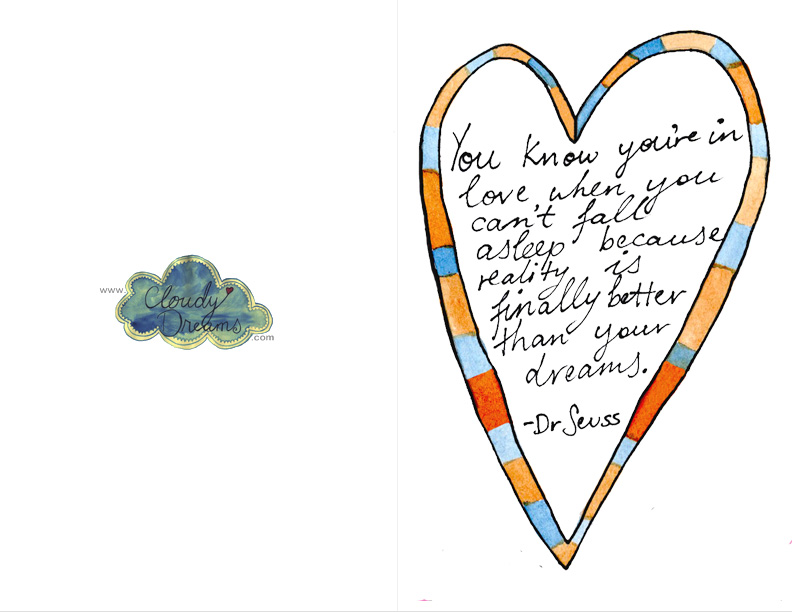 www.
Cloudy
Dreams
.com
You know you're in
love when you
can't fall
asleep because
reality is
finally better
than your
dreams.
-Dr Seuss